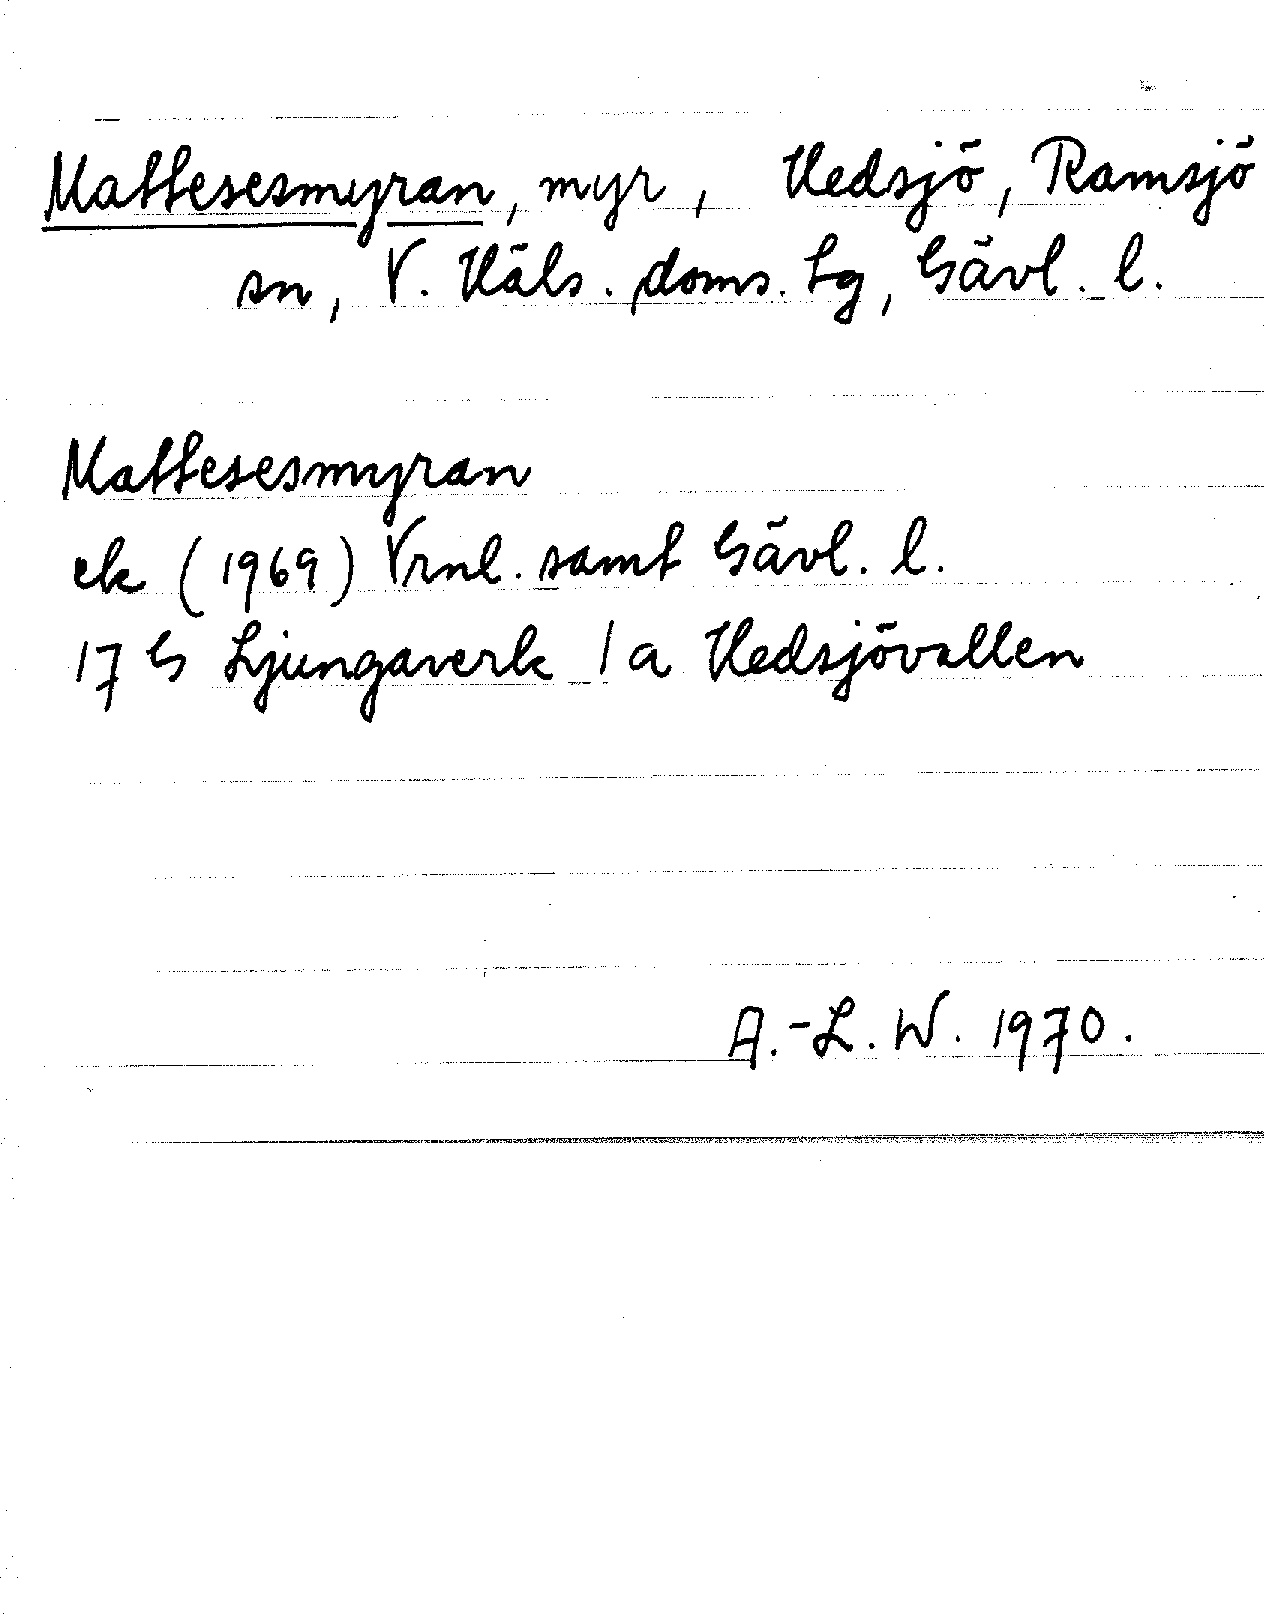 Mattesesmyran, myr, Hedsjö, Ramsjö
sn, V. Häls. doms. tg, Gävl. l.
Mattesesmyran
ek (1969) Vrnl. samt Gävl. l.
17 G Ljungaverk 1 a Hedsjövallen
A.-L. W. 1970.